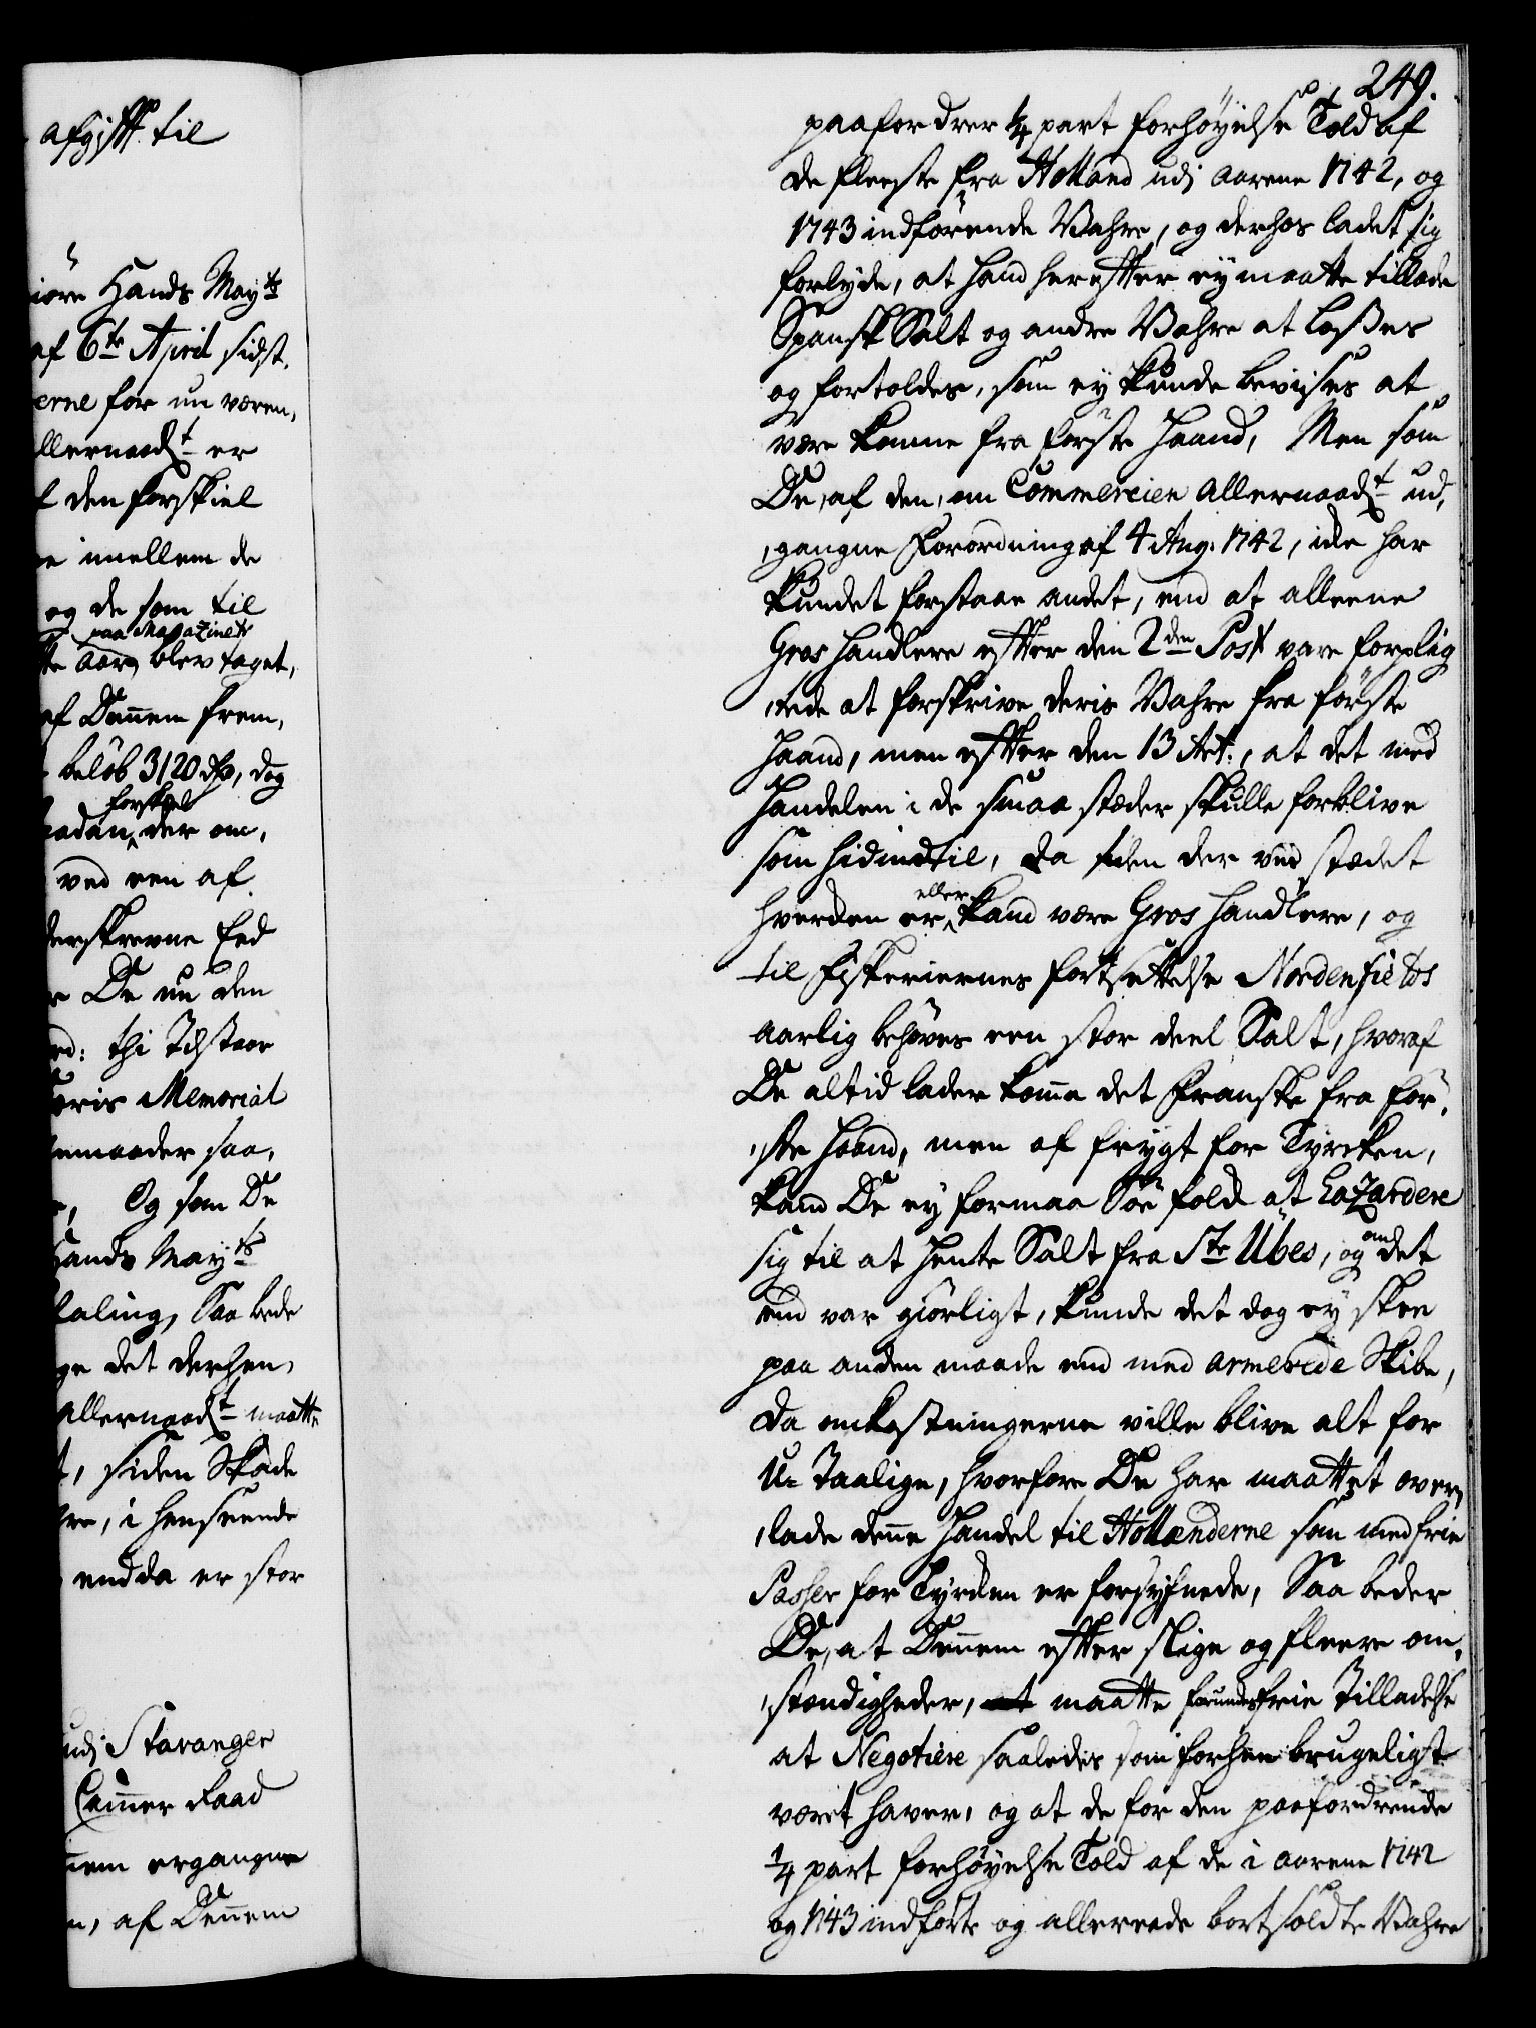 afgifft til
iöre Hands May<sup>ts</sup>
af 6<sup>te</sup> April sidst,
erne for nu væren,
llernaad<sup>t</sup> er
f den forskiel
e imellem de
og de som til
paa Magazinet
te aar, blev taget,
af Dennem frem,
beløb 3120 rdr, dog
forskiel
aadan, der om,
ved een af
derskrevne Eed
r De nu den
ed: thi Jdstaar
eris Memorial
emaader saa,
e, Og som De
Hands May<sup>ts</sup>
taling, Saa bede
ge det derhen,
allernaad<sup>t</sup> maatte
t, siden Skade
re, i henseende
endda er stor
udj Stavanger
Cammer Raad
nem ergangne
n, af Dennem
249.
paafordrer 1/4 part forhøyelse Told af
de fleeste fra Holland udj aarene 1742, og
1743 indförende Vahre, og derhos ladet sig
forlyde, at hand herefter ey maatte tillade
Spansk Salt og andre Vahre at losses
og fortoldes, som ey kunde bevises at
være komne fra förste haand, Men som
De, af den, om Commercien allernaad<sup>t</sup> ud,
,gangne Forordning af 4 Aug: 1742, icke har
kundet forstaae andet, end at alleene
Gros Handlere efter den 2<sup>den</sup> Post vare forplig
,tede at forskrive deris Vahre fra förste
Haand, men efter den 13 Art:, at det med
Handelen i de smaa stæder skulle forblive
som hidindtil, da siden der ved stædet
hverken er eller kand være Gros Handlere, og
til Fiskeriernes fortsættelse Nordenfields
aarlig behöves een stor deel Salt, hvoraf
De altid lader komme det Franske fra för,
,ste haand, men af frygt for Tyrcken,
kand De ey formaa Söe folck at hazardere
sig til at hente Salt fra S<sup>te</sup> Ubes, og om det
end var giörligt, kunde det dog ey skee
paa anden maade end med armerede Skibe,
da omkostningerne ville blive alt for
U-Taalige, hvorfore De har maattet over,
,lade denne Handel til Hollænderne som med frie
Passer for Tyrcken er forsyfnede, Saa beder
De, at Dennem efter slige og fleere om,
,stændigheder, maatte forundes frie Tilladelse
at Negotiere saaledes som forhen brugeligt
været haver, og at de for den paafordrende
1/4 part forhøyelse Told af de i aarene 1742
og 1743 indförte og allereede bortsoldte Vahre